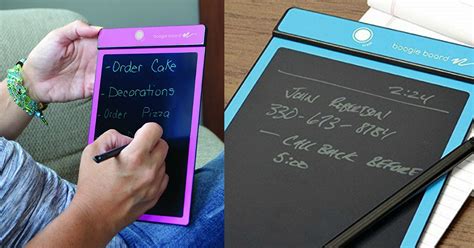 boogie board
- Order Cake
- Decorations
- Order Pizza
boogie board
2:24
JOHN ROBERTSON
330-673-8184
- CALL BACK BEFORE
5:00